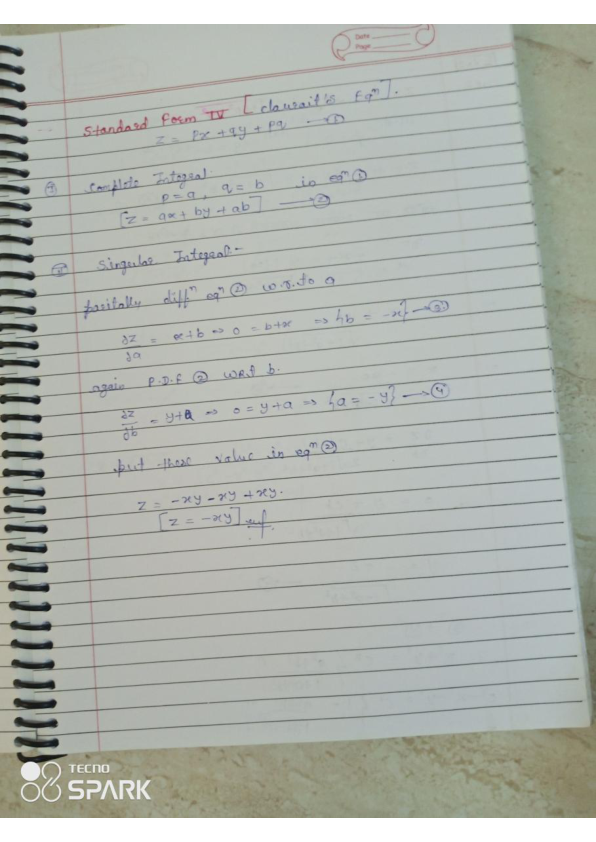 Date
Page
Standard Form IV [Claurait's Eqⁿ].
z = px + qy + pq —①
① Complete Integral
p = a, q = b in eqⁿ ①
[z = ax + by + ab] —②
② Singular Integral -
paritally diffⁿ eqⁿ ② w.r.to a
∂z/∂a = x+b ⇒ 0 = b+x ⇒ {b = -x} —③
again P.D.E ② W.R.t b.
∂z/∂b = y+a ⇒ 0 = y+a ⇒ {a = -y} —④
put these value in eqⁿ ②
z = -xy - xy + xy.
[z = -xy]
TECNO
SPARK